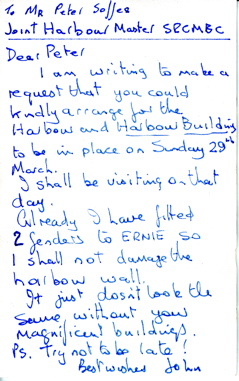 To Mr Peter Solfes
Joint Harbour Master SRCMBC
Dear Peter
I am writing to make a
request that you could
kindly arrange for the
Harbour and Harbour Building
to be in place on Sunday 29th
March.
I shall be visiting on that
day.
Already I have fitted
2 fenders to ERNIE so
I shall not damage the
harbour wall.
It just dosn't look the
same without your
magnificent buildings.
Ps. Try not to be late!
Best wishes John